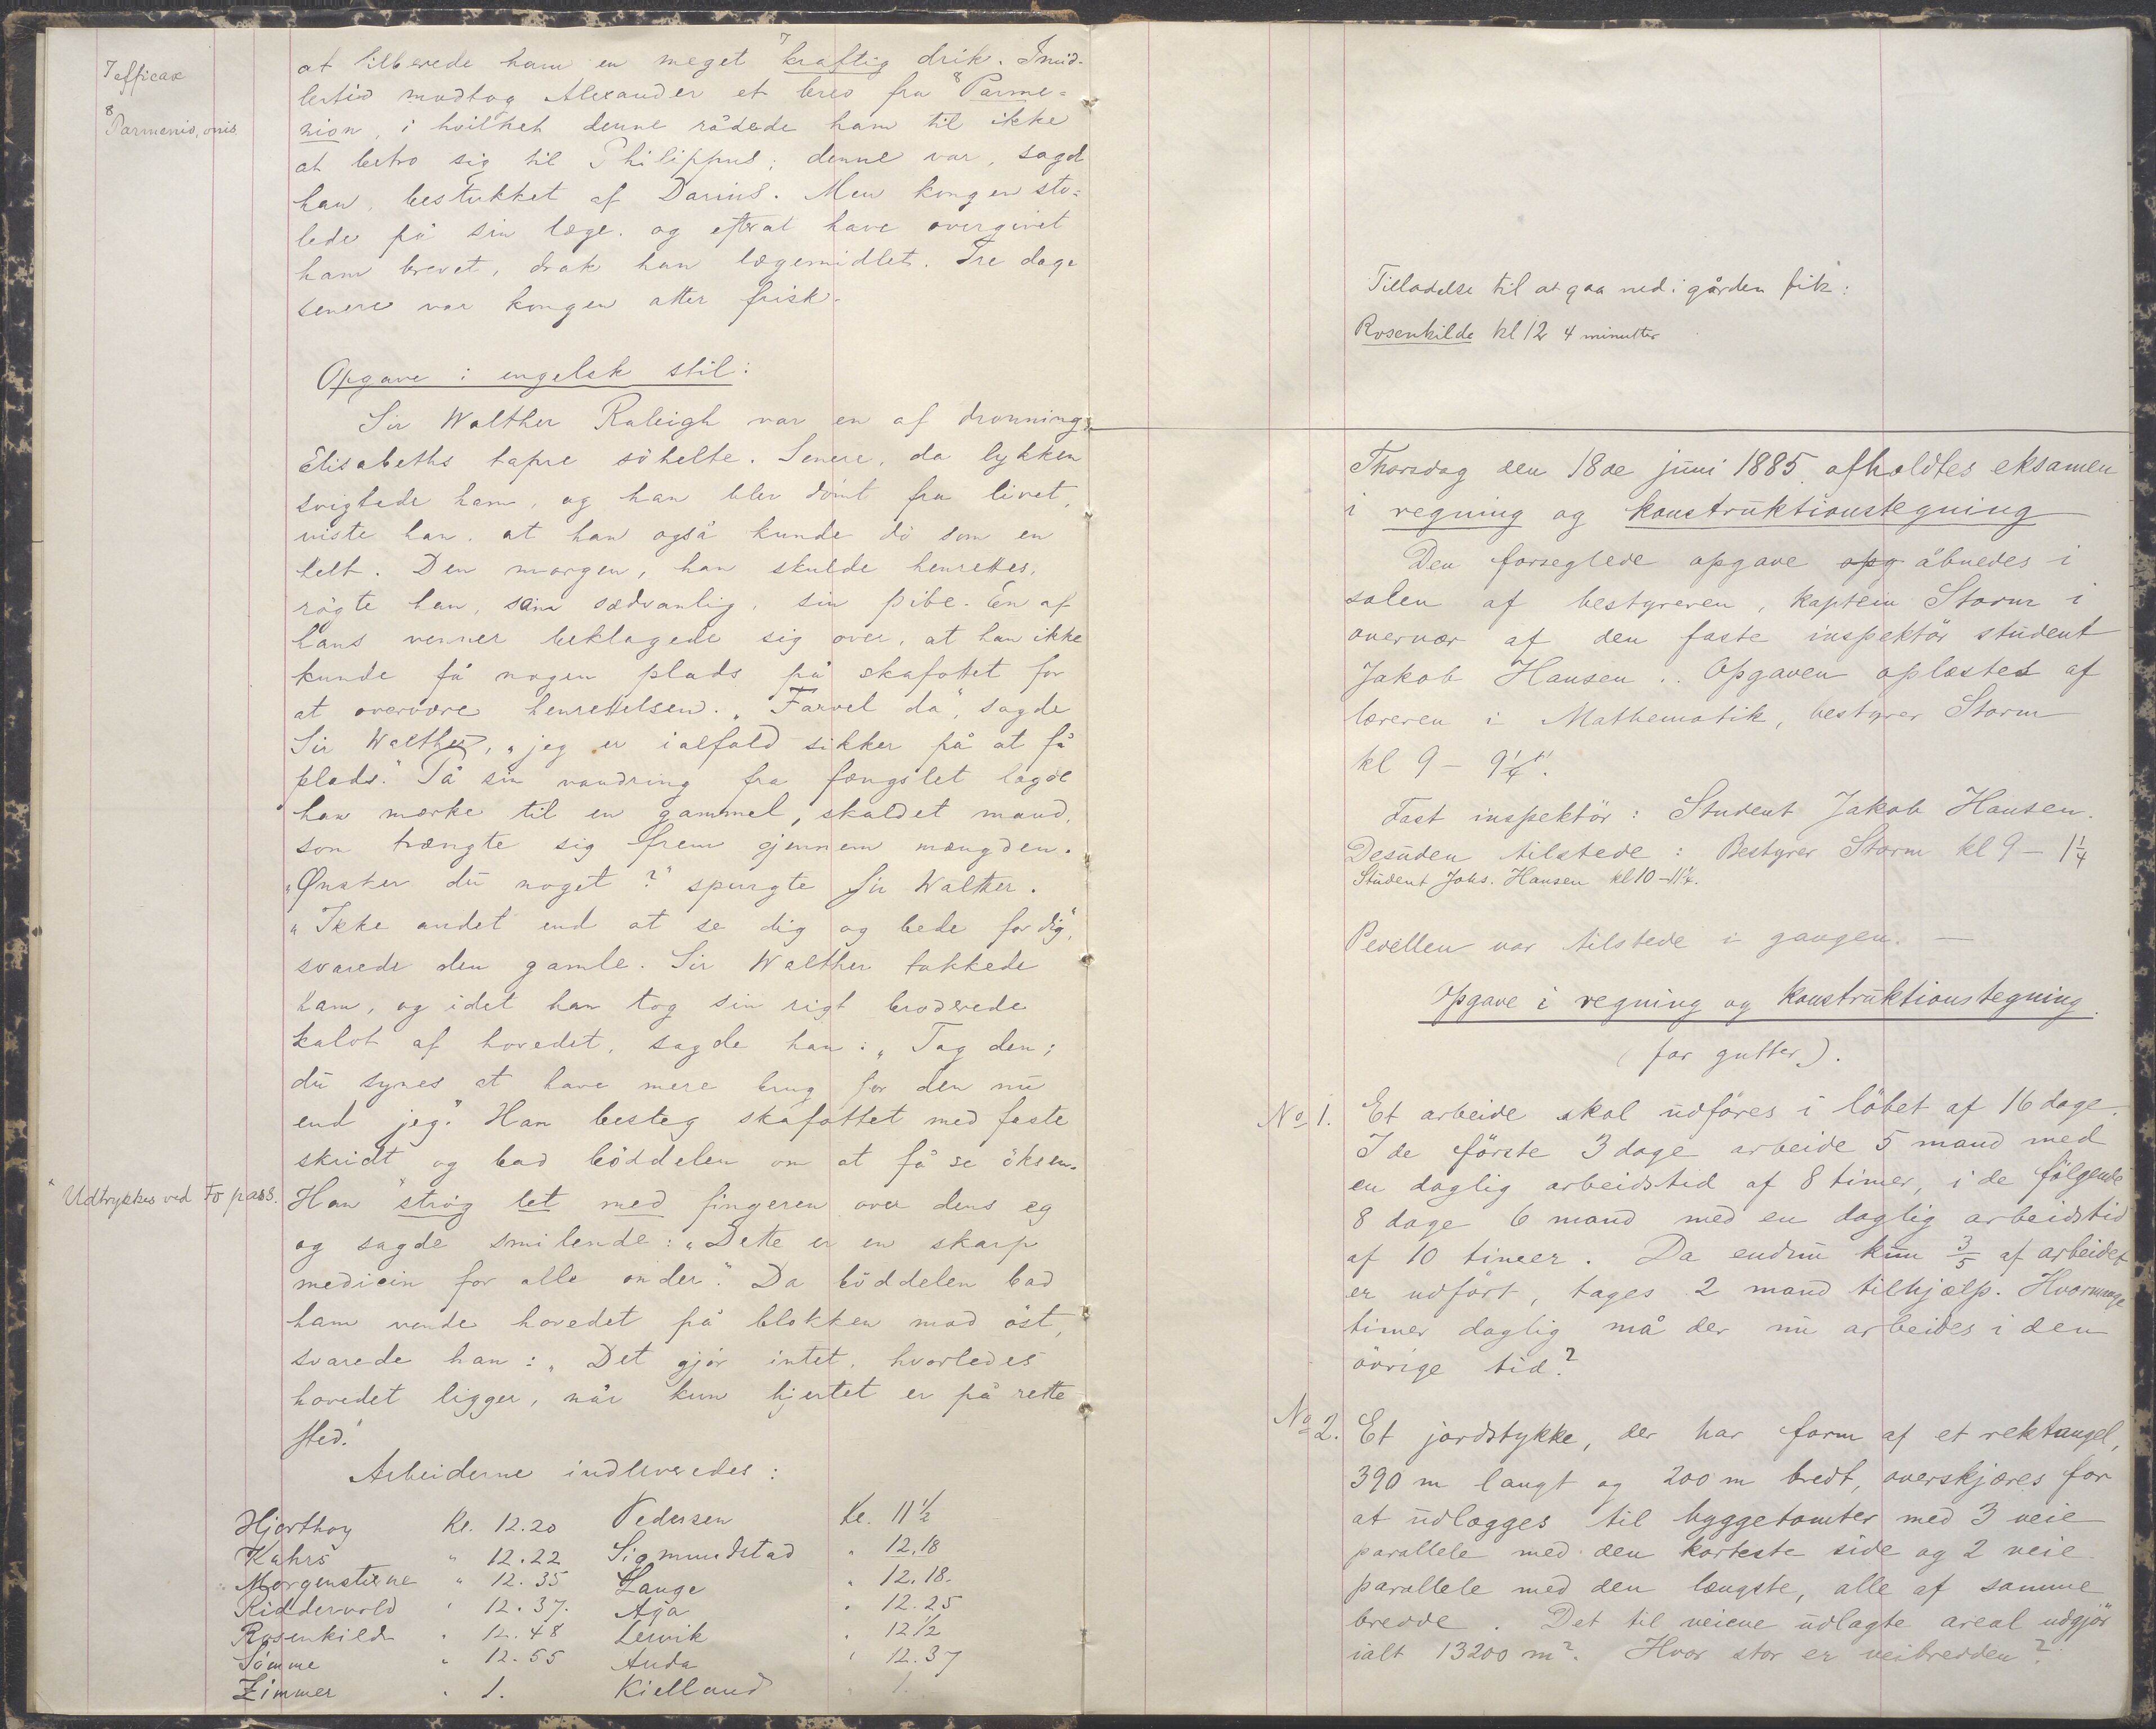 7 efficax
8 Parmenio, onis
at tilberede ham en meget 7 kraftig drik. Imid-
lertid modtog Alexander et brev fra 8 Parme=
nion, i hvilket denne rådede ham til ikke
at betro sig til Philippus; denne var, sagde
han, bestukket af Darius. Men kongen sto=
lede på sin læge. og efterat have overgivet
ham brevet, drak han lægemidlet. Tre dage
senere var kongen atter frisk.
Opgave i engelsk stil:
Sir Walther Raleigh var en af dronning
Elisabeths tapre söhelte. Senere, da lykken
svigtede ham, og han blev dömt fra livet,
viste han, at han også kunde dö som en
helt. Den morgen, han skulde henrettes,
rögte han, som sædvanlig, sin pibe. En af
hans venner beklagede sig over, at han ikke
kunde få nogen plads på skafottet for
at overvære henrettelsen. „Farvel da“, sagde
Sir Walther, „jeg er ialfald sikker på at få
plads.“ På sin vandring fra fængslet lagde
han mærke til en gammel, skaldet mand,
som trængte sig frem gjennem mængden.
„Ønsker du noget?“ spurgte Sir Walther.
„Ikke andet end at se dig og bede for dig“,
svarede den gamle. Sir Walther takkede
ham, og idet han tog sin rigt broderede
kalot af hovedet, sagde han: „Tag den;
du synes at have mere brug for den nu
end jeg.“ Han besteg skafottet med faste
skridt og bad böddelen om at få se öksen.
" Udtrykkes ved to pass.
Han "strög let med fingeren over dens eg
og sagde smilende: „Dette er en skarp
medicin for alle onder.“ Da böddelen bad
ham vende hovedet på blokken mod öst,
svarede han: „Det gjör intet, hvorledes
hovedet ligger, når kun hjertet er på rette
sted.“
Arbeiderne indleveredes:
Hjorthoy Kl. 12.20 Pedersen Kl. 11 1/2
Kahrs " 12.22 Sigmundstad " 12.18
Morgenstierne " 12.35 Lange " 12.18.
Riddervold " 12.37. Aga " 12.25
Rosenkilde " 12.48 Lervik " 12 1/2
Sömme " 12.55 Anda " 12.37
Zimmer " 1. Kielland " 1.
Tilladelse til at gaa ned i gården fik:
Rosenkilde kl 12 4 minutter
Thorsdag den 18de juni 1885 afholdtes eksamen
i regning og konstruktionstegning
Den forseglede opgave opg åbnedes i
salen af bestyreren, kaptein Storm i
overvær af den faste inspektör student
Jakob Hansen. Opgaven oplæstes af
læreren i Mathematik, bestyrer Storm
kl 9 – 9 1/4.
Fast inspektör: Student Jakob Hansen.
Desuden tilstede: Bestyrer Storm kl 9 – 1 1/4
Student Johs. Hansen kl 10 – 11 1/2.
Pedellen var tilstede i gangen. —
Opgave i regning og konstruktionstegning.
(for gutter).
No 1. Et arbeide skal udföres i löbet af 16 dage.
I de förste 3 dage arbeide 5 mand med
en daglig arbeidstid af 8 timer, i de fölgende
8 dage 6 mand med en daglig arbeidstid
af 10 timer. Da endnu kun 3/5 af arbeidet
er udfört, tages 2 mand tilhjælp. Hvormange
timer daglig må der nu arbeides i den
övrige tid?
No 2. Et jordstykke, der har form af et rektangel,
390 m langt og 200 m bredt, overskjæres for
at udlægges til byggetomter med 3 veie
parallele med den korteste side og 2 veie
parallele med den længste, alle af samme
bredde. Det til veiene udlagte areal udgjör
ialt 13200 m². Hvor stor er veibredden?